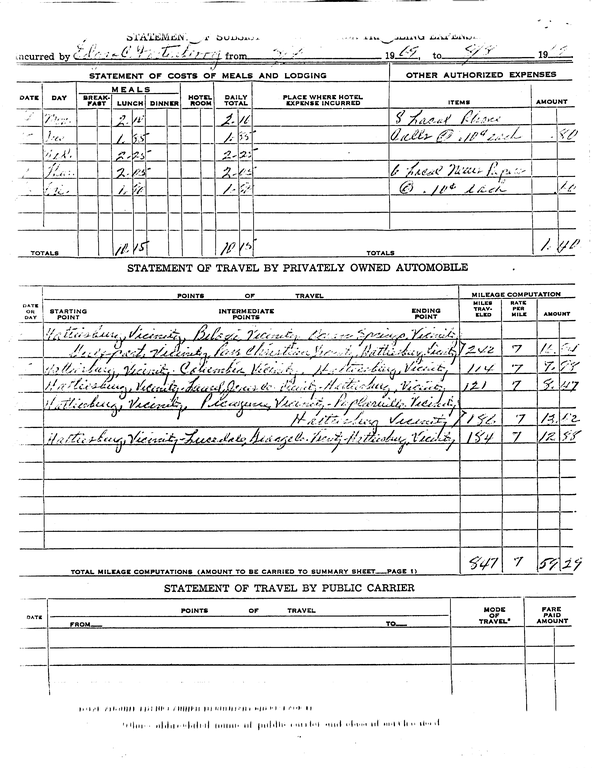 STATEMENT OF SUBSIST
incurred by from 1969, to 19
STATEMENT OF COSTS OF MEALS AND LODGING OTHER AUTHORIZED EXPENSES
DATE DAY MEALS BREAK-FAST LUNCH DINNER HOTEL ROOM DAILY TOTAL PLACE WHERE HOTEL EXPENSE INCURRED ITEMS AMOUNT
Mon. 2.10 2.10 8 Local Phone
1.85 1.85 Calls @ .10¢ each .80
Wed. 2.25 2.25
2.05 2.05 6 Local News Papers
1.90 1.90 @ .10¢ each
TOTALS 10.15 10.15 TOTALS 1.40
STATEMENT OF TRAVEL BY PRIVATELY OWNED AUTOMOBILE
DATE OR DAY POINTS OF TRAVEL MILEAGE COMPUTATION
STARTING POINT INTERMEDIATE POINTS ENDING POINT MILES TRAV-ELED RATE PER MILE AMOUNT
Hattiesburg, Vicinity, Biloxi Vicinity, Ocean Springs, Vicinity,
Gulfport Vicinity, Pass Christian Vicinity, Hattiesburg, Vicinity 242 7
Hattiesburg, Vicinity, Columbia Vicinity, Hattiesburg, Vicinity 114 7
Hattiesburg, Vicinity, Laurel, Jones Co. Vicinity - Hattiesburg, Vicinity 121 7 8.47
Hattiesburg, Vicinity, Picayune, Vicinity - Poplarville, Vicinity
Hattiesburg Vicinity 186 7 13.02
Hattiesburg, Vicinity - Lucedale, George Co. Vicinity - Hattiesburg, Vicinity 184 7 12.88
TOTAL MILEAGE COMPUTATIONS (AMOUNT TO BE CARRIED TO SUMMARY SHEET PAGE 1) 847 7 59.29
STATEMENT OF TRAVEL BY PUBLIC CARRIER
DATE POINTS OF TRAVEL MODE OF TRAVEL* FARE PAID AMOUNT
FROM TO
*Show abbreviated name of public carrier and class of service used